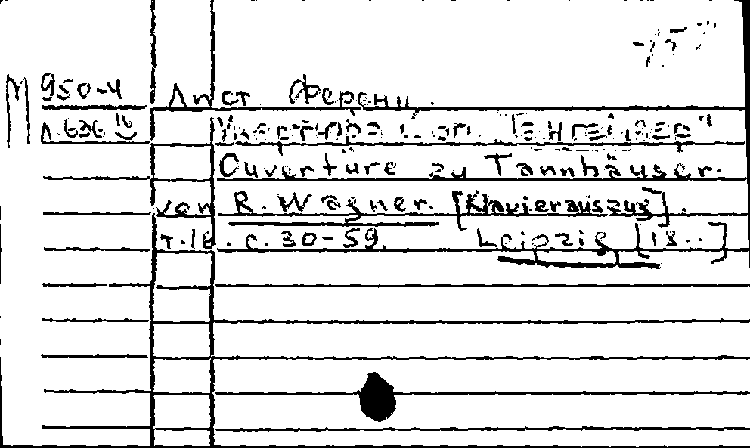 -157
М 950-4 Лист Ференц.
Л.636 Iб Увертюра к оп. "Тангейзер"
Ouvertüre zu Tannhäuser.
von R. Wagner. [Klavierauszug].
т. с. 30-59. Leipzig [18..]